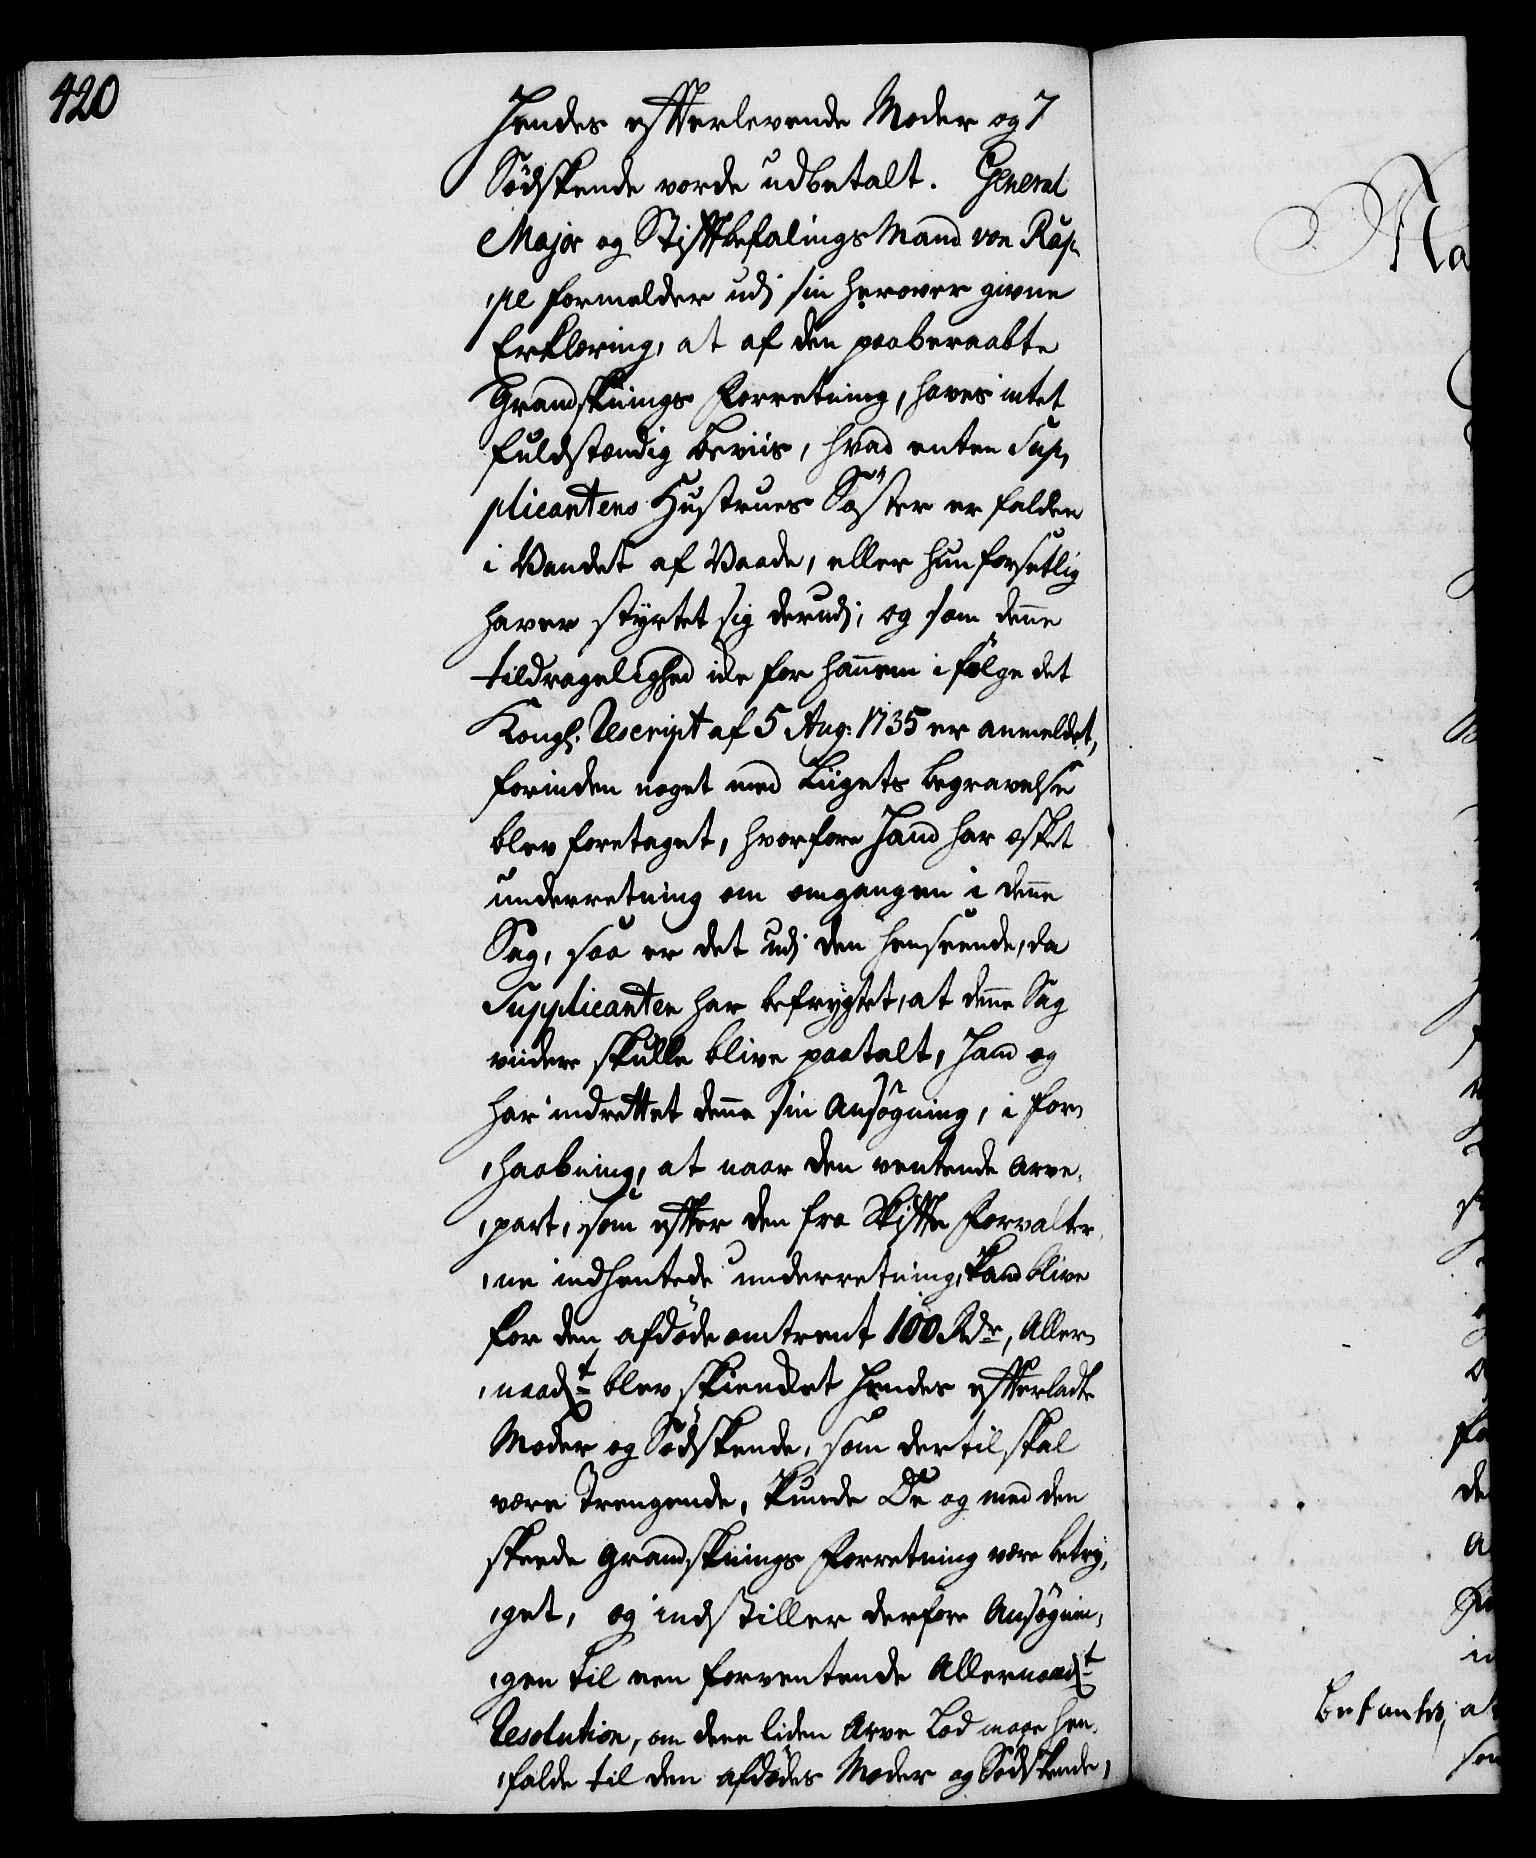 420
Hendes effterlevende Moder og 7
Södskende vorde udbetalt. General
Major og Stiftbefalings Mand von Rap,
,pe formelder udj sin herover givne
Erklæring, at af den paaberaabte
Grandsknings Forretning, haves intet
fuldstændig beviis, hvad enten Sup,
plicantens Hustrues Söster er falden
i Vandet af Vaade, eller hun forsetlig
haver styrtet sig derudj; og som denne
tildragelighed icke for hannem i følge det
Kongl. Rescript af 5 Aug: 1735 er anmeldet,
forinden noget med Liigets begravelse
blev foretaget, hvorfore Hand har æsket
underretning om omgangen i denne
Sag, saa er det udj den henseende, da
Supplicanten har befrygtet, at denne Sag
viidere skulle blive paatalt, Hand og
har indrettet denne sin Ansögning, i for,
,haabning, at naar den ventende Arve,
,part, som efter den fra Skifte Forvalter,
,ne indhentede underretning, kand blive
for den afdöde omtrent 100 Rdr, Aller,
,naadt blev skienket Hendes effterladte
Moder og Södskende, som dertil skal
være Trengende, kunde De og med den
skeede Grandsknings Forretning være betry,
,get, og indstiller derfore Ansögnin,
,gen til een forventende Allernaadt
Resolution, om dene liden Arve Lod maae hen,
,falde til den afdödes Moder og Södskende,
Na